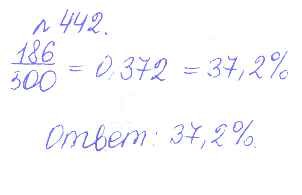 № 442.
186/500 = 0,372 = 37,2%
Ответ: 37,2%.